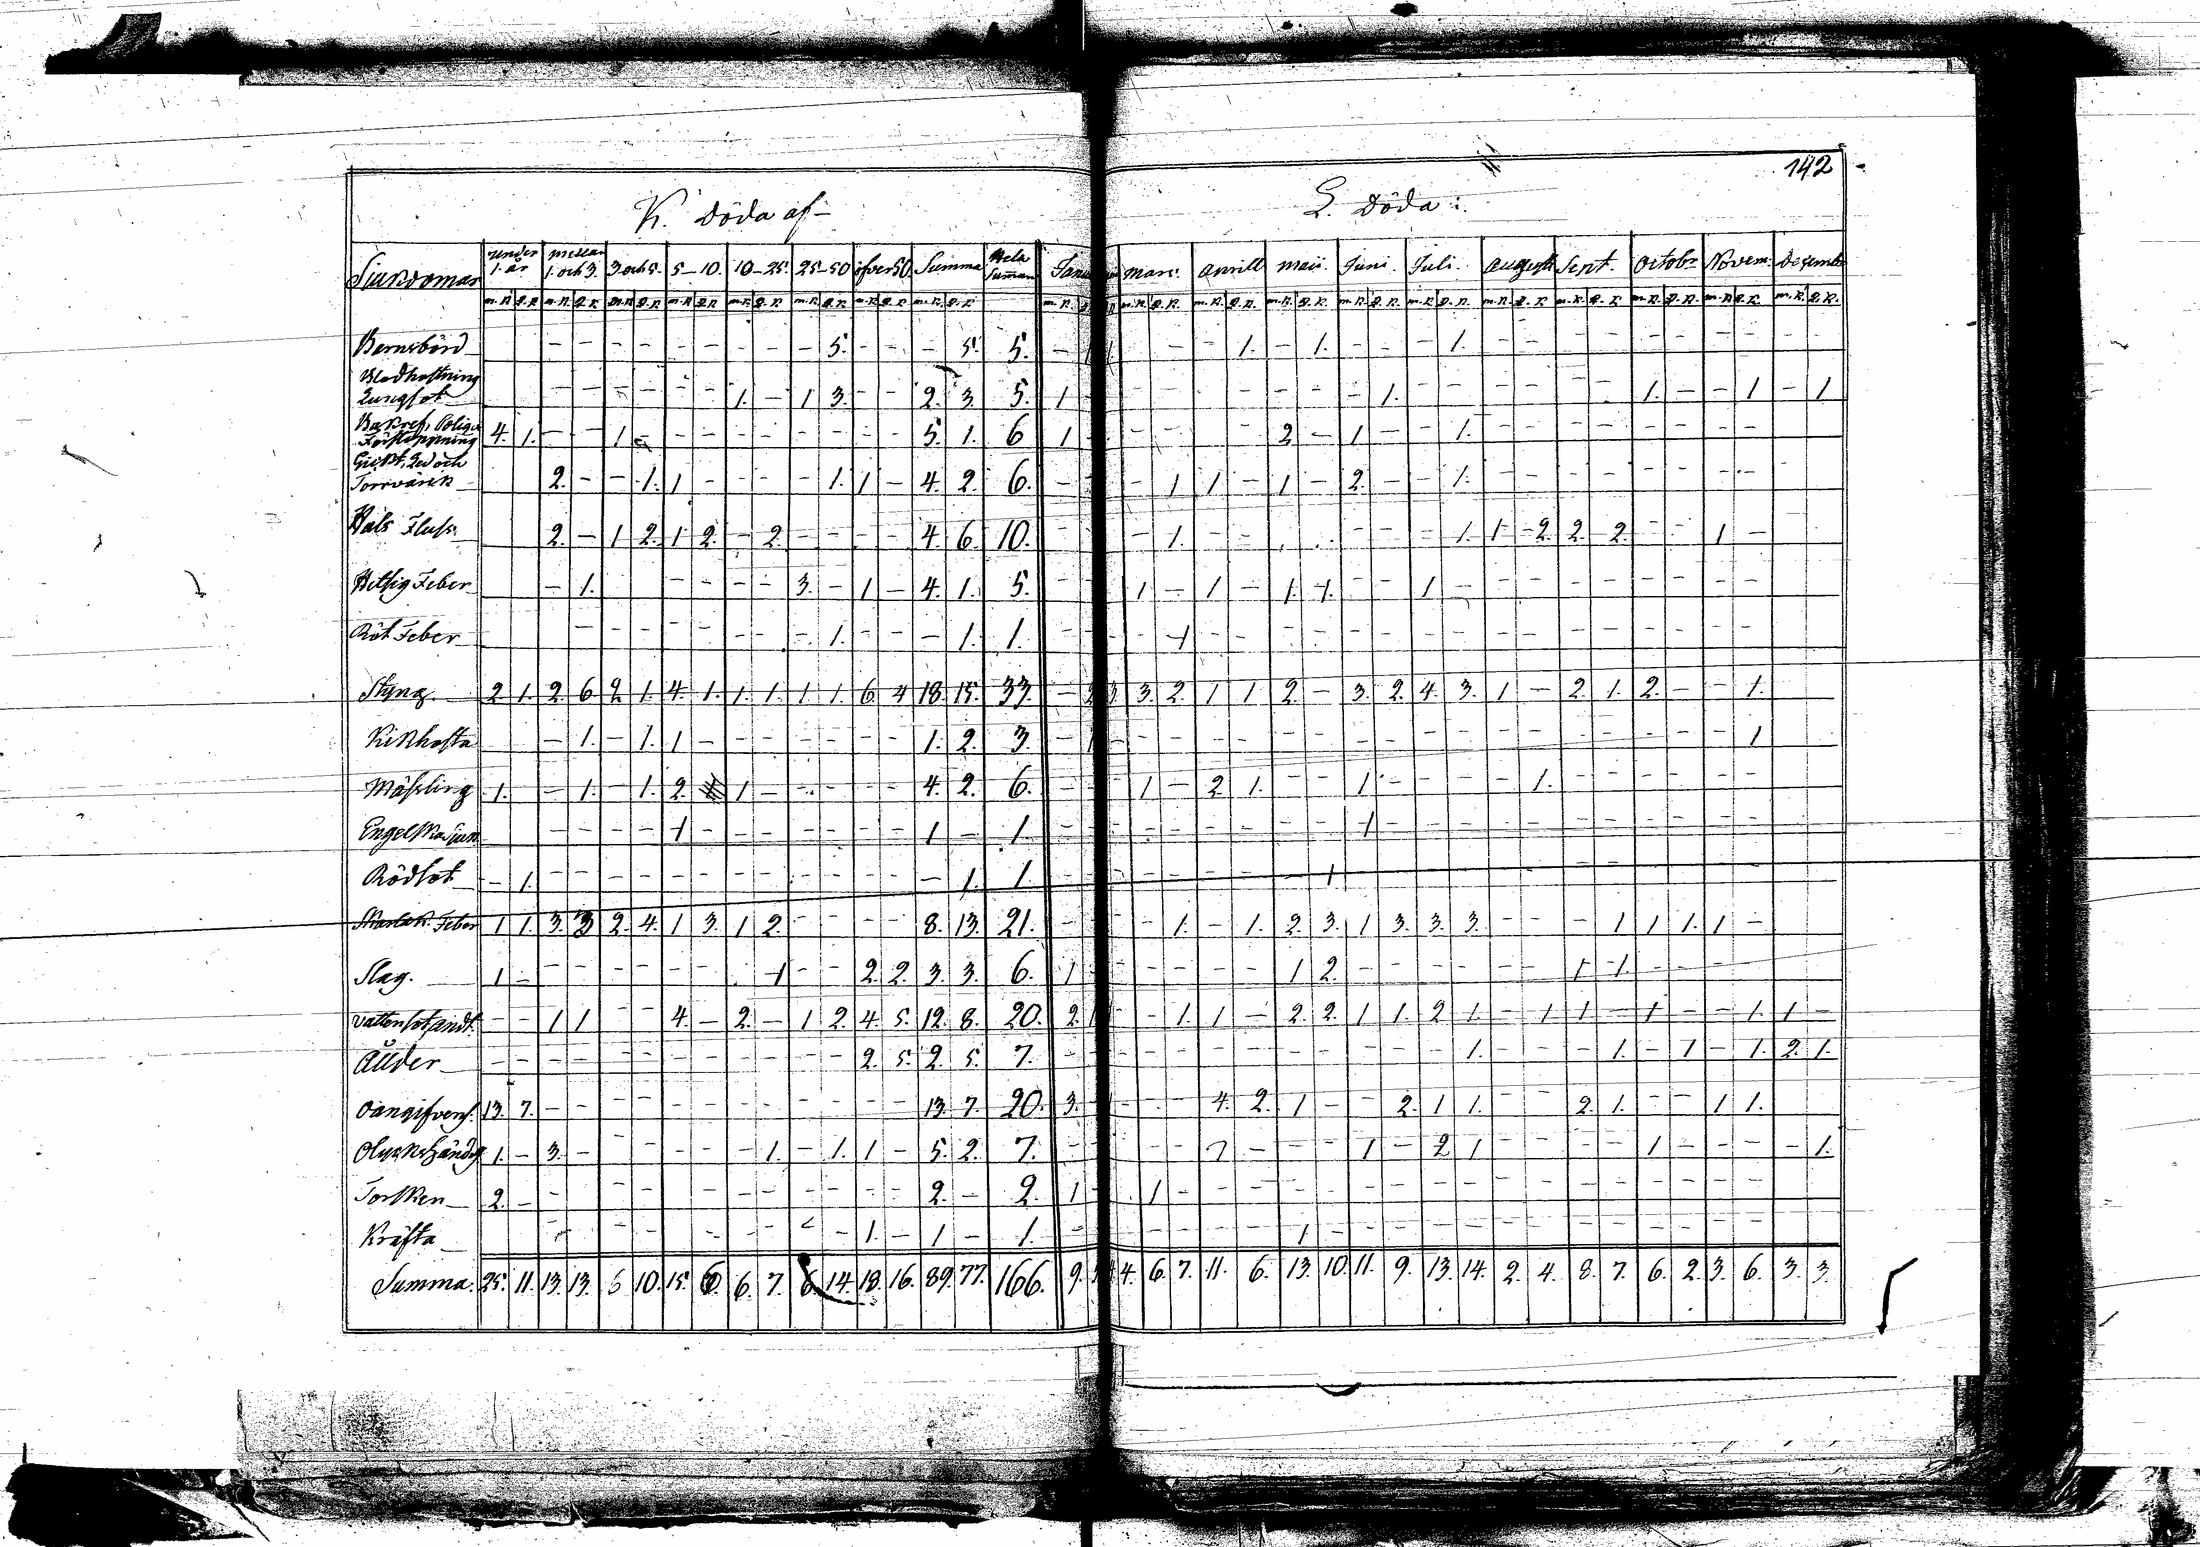 142
K. Döda af
L. Döda:
Sjukdomar under 1. år mellan 1. och 3. 3 och 5. 5-10. 10-25. 25-50 öfver 50. Summa Hela Suman Janu Mars. Aprill Maii. Juni. Juli. Augusti Sept. Octobr Novem. Decembr
m.k. q.k. m.k. q.k. m.k. q.k. m.k. q.k. m.k. q.k. m.k. q.k. m.k. q.k. m.k. q.k. m.k. m.k. q.k. m.k. q.k. m.k. q.k. m.k. q.k. m.k. q.k. m.k. q.k. m.k. q.k. m.k. q.k. m.k. q.k. m.k. q.k.
Barnsbörd - - - - - - - - - 5. - - - 5. 5. - 1 1. - 1. - - - 1. - -
Blodhostning
Lungsot - - - - - - 1. - 1 3. - - 2. 3. 5. 1 - - 1. - - 1. - - 1 - 1
Förstoppning 4. 1. - - 1 - - - - - - - 5. 1. 6 1 - - 2 - 1 - - 1. - -
Gickt, Led och
Torrvärck 2. - - 1. 1 - - - - 1. 1 - 4. 2. 6. - - 1 1 - 1 - 2 - - 1. - -
Hals Fluss 2. - 1 2. 1 2. - 2. - - - - 4. 6. 10. - - - 1. - - 1. 1 - 2. 2. 2. - - 1 -
Hetsig Feber - 1. - - - - 3. - 1 - 4. 1. 5. - - 1 - 1 - 1. 1. - - 1 - -
Röt Feber - - - - - - - 1. - - - 1. 1. - - 1 - - -
Styng. 2 1. 2. 6. 2 1. 4. 1. 1. 1. 1 1. 6. 4 18. 15. 33. - 2 3 3. 2. 1 1 2. - 3. 2. 4. 3. 1 - 2. 1. 2. - - 1.
Kikhosta - 1. - 1. 1 - - - - - - 1. 2. 3. - 1 - - - - 1
Mässling 1. - 1. - 1. 2. 1 - - - - 4. 2. 6. - - 1 - 2 1. - - 1 - - - 1. - -
- - - - 1 - - - - - 1 - 1. - - - 1 - - -
Rödsot - 1. - - - - - - - - 1. 1. - - - 1 - -
Skarlak. Feber 1 1. 3. 3 2. 4. 1 3. 1 2. - - - - 8. 13. 21. - - - 1. - 1. 2. 3. 1 3. 3. 3. - - - 1 1 1. 1 -
Slag. 1 - - - - - - - 1 - - 2. 2. 3. 3. 6. 1 - - 1 2. - - - 1 1. - -
Vattensot, andt. - - 1 1 - - 4. - 2. - 1 2. 4. 5. 12. 8. 20. 2. 1 - - 1. 1 - 2. 2. 1 1. 2 1. - 1 1 - 1 - - 1. 1 -
Ålder - - - - - - - - 2. 5. 2. 5. 7. - - - 1. - - - 1. - 1 - 1. 2. 1.
Oangifvens. 13. 7. - - - - - - - 13. 7. 20. 3. - - 4. 2. 1 - - 2. 1 1. - - 2. 1. - - 1 1.
Olyckshändig 1 - 3. - - - - - - 1. - 1. 1 - 5. 2. 7. - - - - 1 - 2 1 - - 1 - - - 1.
Torsken 2. - - - - - - - 2. - 2. 1 - 1 - - - -
Kräfta - - - - - 1. - 1 - 1. - - 1 - - -
Summa. 25. 11. 13. 13. 5 10. 15. 6. 6. 7. 6. 14. 18. 16. 89. 77. 166. 9. 4. 6. 7. 11. 6. 13. 10. 11. 9. 13. 14. 2. 4. 8. 7. 6. 2. 3. 6. 3. 3.